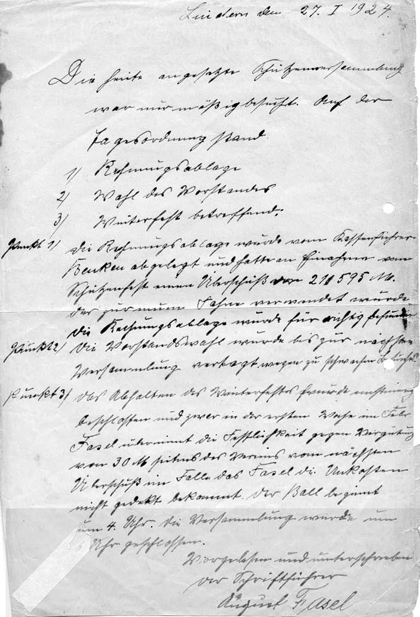 Lindern den 27. I 1924.
Die heute angesetzte Schützenversammlung
war nur mäßig besucht. Auf der
Tagesordnung stand
1) Rechnungsablage
2) Wahl des Vorstandes
3) Winterfest betreffend.
Punkt 1) Die Rechnungsablage wurde vom Kassenführer
abgelegt und hatte an Einnahme vom
Schützenfest einen Überschuß von 210 595 M.
der zur neuen Fahne verwendet wurde
Die Rechnungsablage wurde für richtig befunden
Punkt 2) Die Vorstandswahl wurde bis zur nächsten
Versammlung vertagt wegen zu schwachen Besuches
Punkt 3) Das Abhalten des Winterfestes wurde einstimmig
beschlossen und zwar in der ersten Woche im Febr.
Fasel übernimmt die Festlichkeit gegen Vergütung
von 30 M seitens des Vereins vom nächsten
Überschuß im Falle das Fasel die Unkosten
nicht gedeckt bekommt. Der Ball beginnt
um 4 Uhr. Die Versammlung wurde um
Uhr geschlossen.
Vorgelesen und unterschrieben
Der Schriftführer
August Fasel